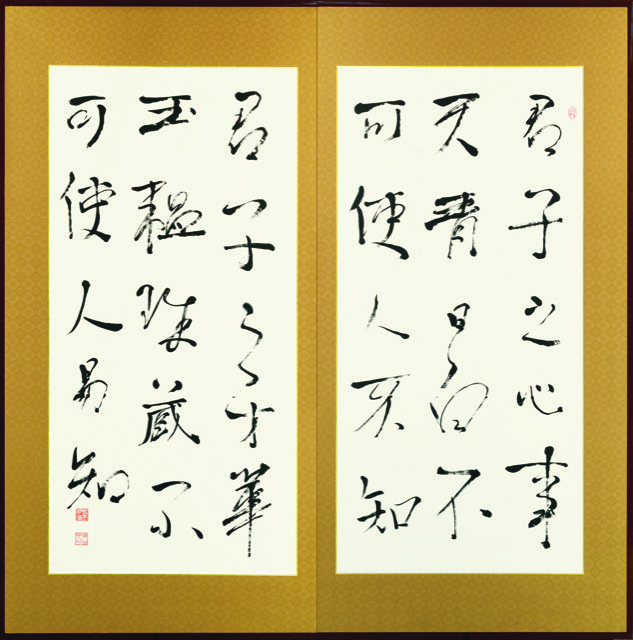 君子之心事
天青日白不
可使人不知
君子之才華
玉韞珠藏不
可使人易知